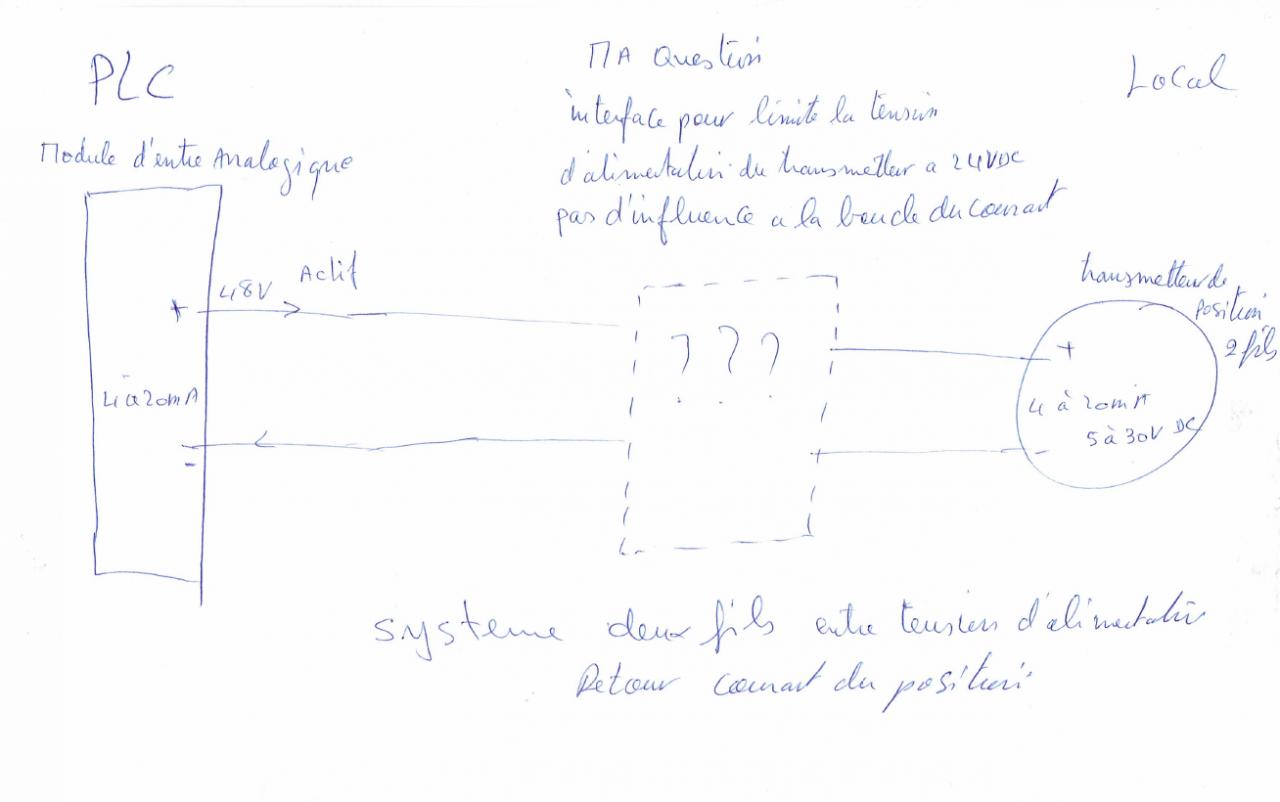 PLC
Module d'entre Analogique
MA Question
interface pour limite la tension
d'alimentation du transmetteur a 24VDC
pas d'influence a la boucle du courant
Local
48V
Actif
+
4 à 20mA
-
? ? ?
transmetteur de
position
2 fils
+
4 à 20mA
5 à 30V DC
-
Systeme deux fils entre tension d'alimentation
Retour courant du position